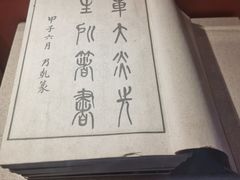 章太炎先
生所箸書
甲子六月 乃乾篆